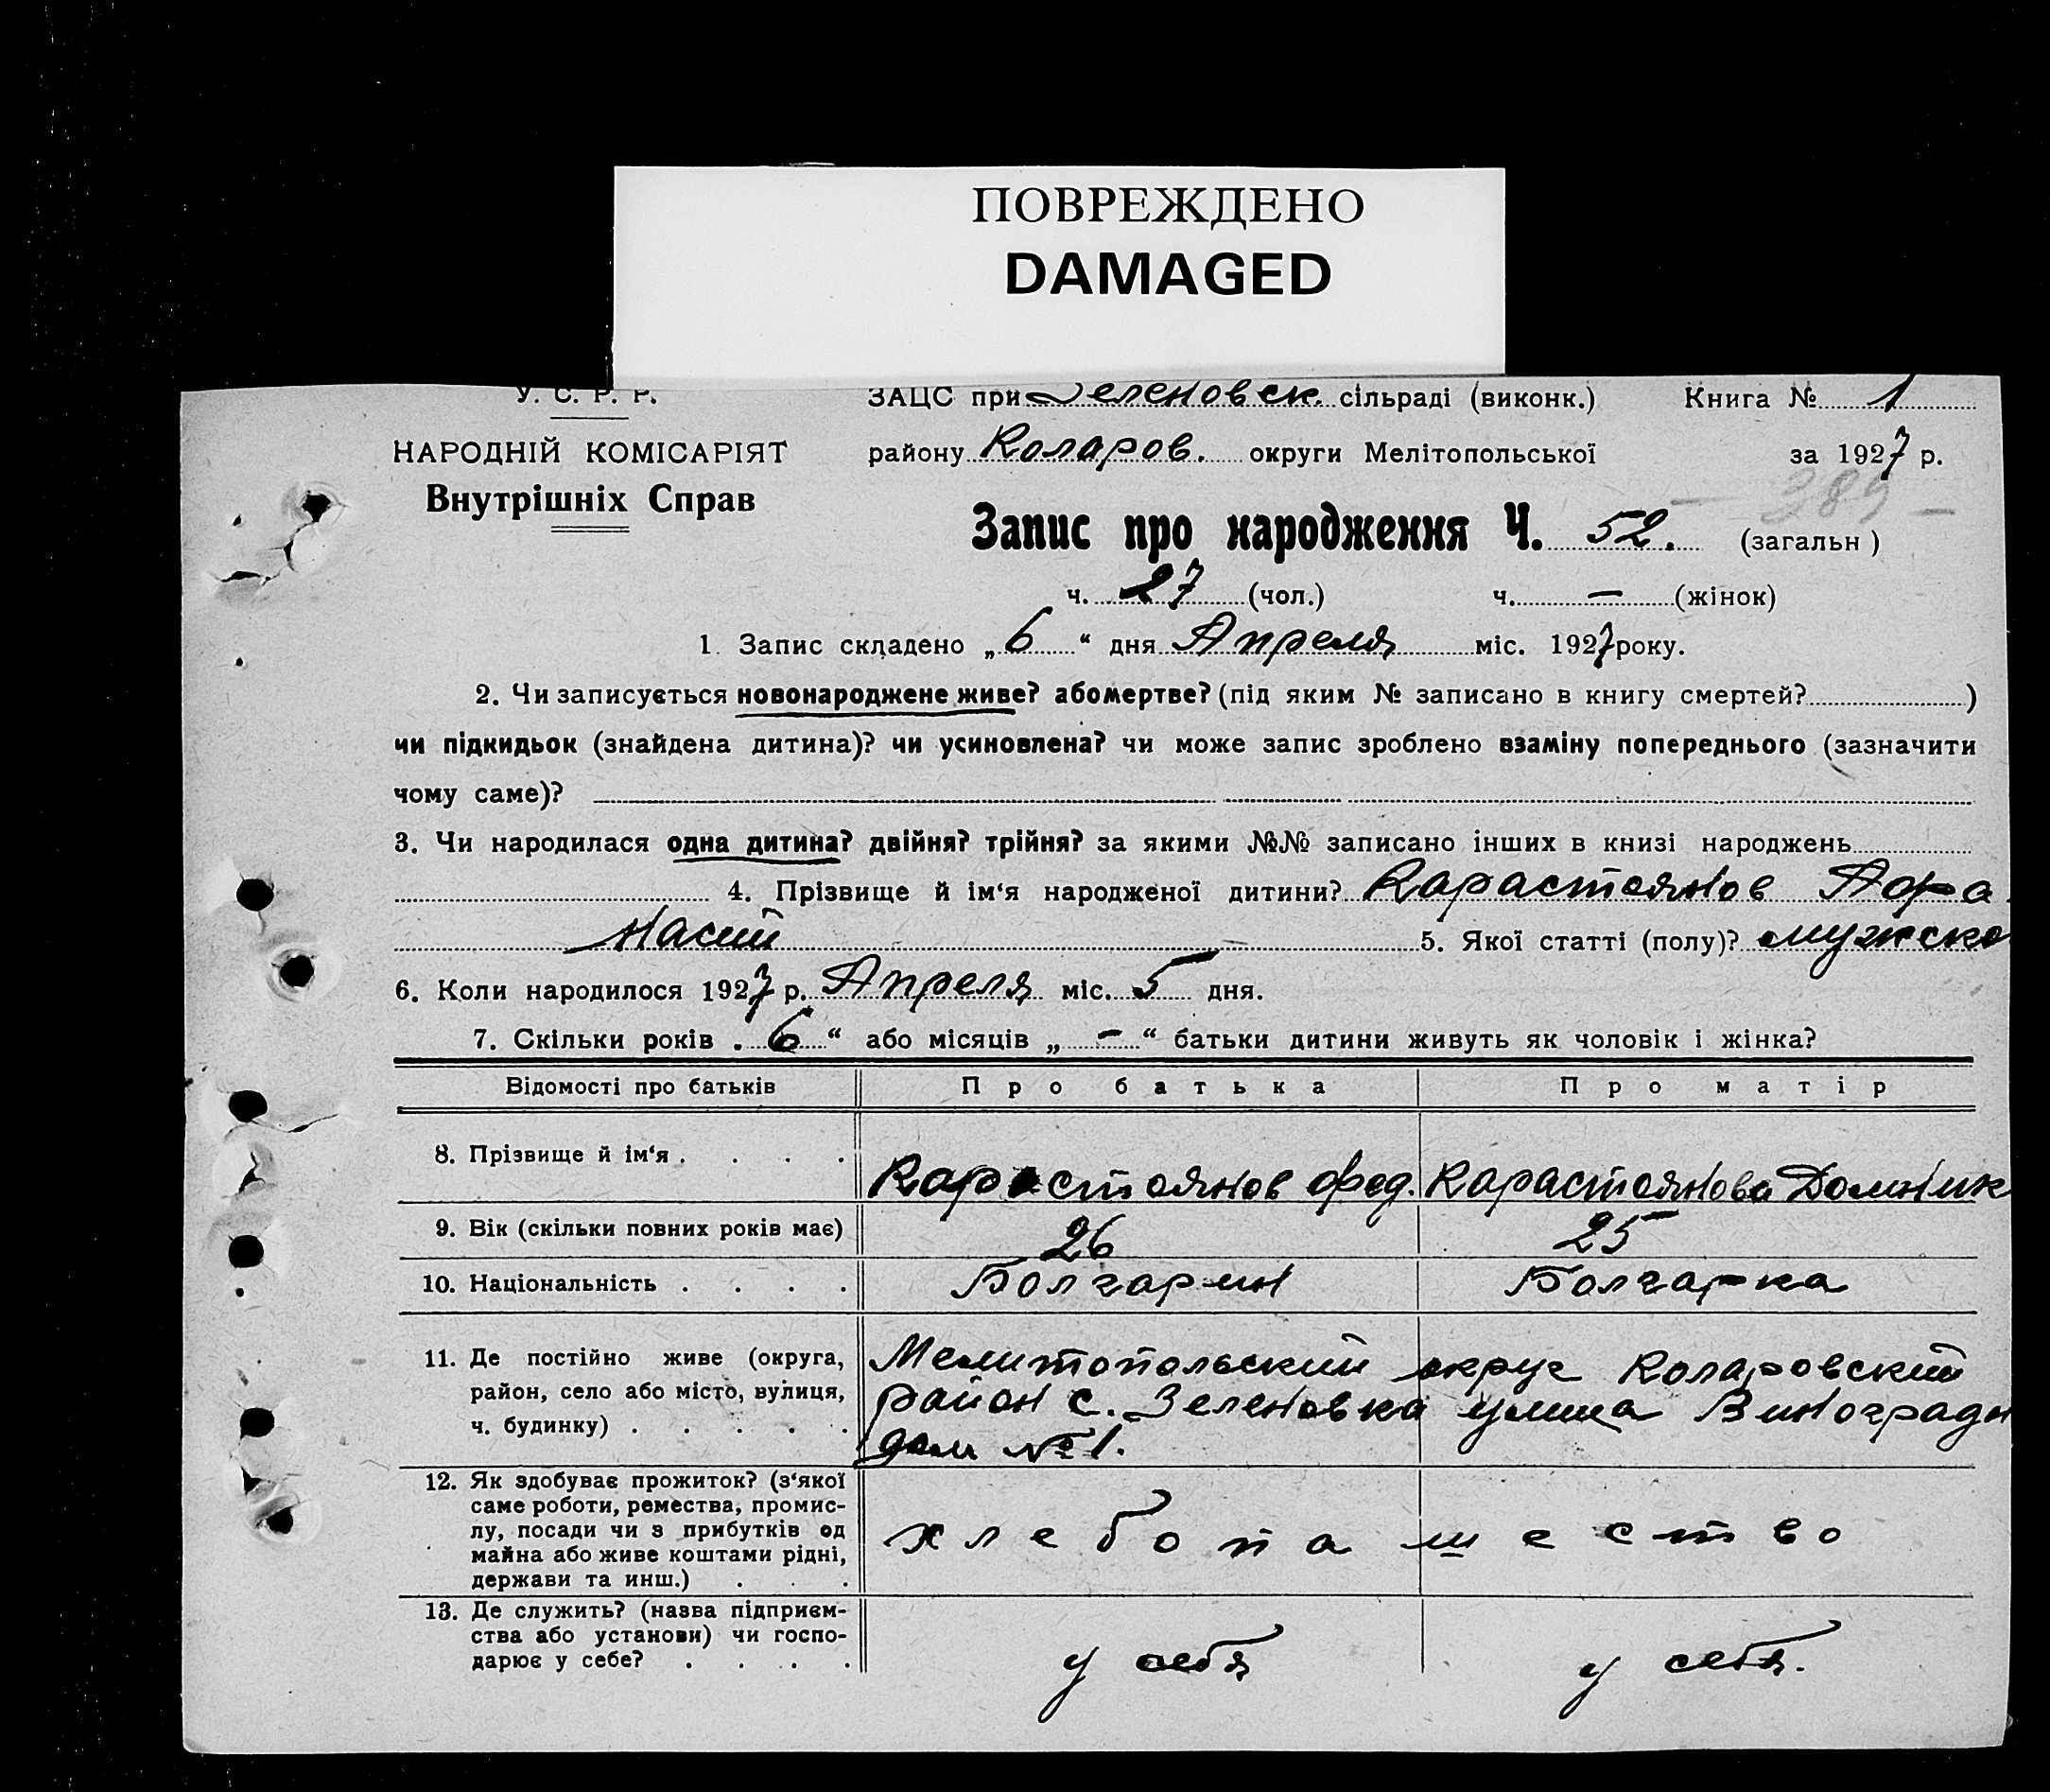 ПОВРЕЖДЕНО
DAMAGED
У. С. Р. Р.
НАРОДНІЙ КОМІСАРІЯТ
Внутрішніх Справ
ЗАЦС при Зеленовск. сільраді (виконк.) Книга № 1
району Коларов. округи Мелітопольської за 1927 р.
– 389 –
Запис про народження Ч. 52. (загальн)
ч. 27 (чол.) ч. – (жінок)
1. Запис складено „6“ дня Апреля міс. 1927 року.
2. Чи записується новонароджене живе? або мертве? (під яким № записано в книгу смертей? )
чи підкидьок (знайдена дитина)? чи усиновлена? чи може запис зроблено взаміну попереднього (зазначити
чому саме)?
3. Чи народилася одна дитина? двійня? трійня? за якими №№ записано інших в книзі народжень
4. Прізвище й ім‘я народженої дитини? Карастоянов Афа
насий 5. Якої статті (полу)? мужско
6. Коли народилося 1927 р. Апреля міс. 5 дня.
7. Скільки років „6“ або місяців „–“ батьки дитини живуть як чоловік і жінка?
Відомості про батьків Про батька Про матір
8. Прізвище й ім‘я . . . . Карастоянов Фед. Карастоянова Домник
9. Вік (скільки повних років має) 26 25
10. Національність . . . . Болгарин Болгарка
11. Де постійно живе (округа,
район, село або місто, вулиця,
ч. будинку) . . . . .
Мелитопольский округ Коларовский
район с. Зеленовка улица Виноградн
дом № 1.
12. Як здобуває прожиток? (з‘якої
саме роботи, ремества, промис-
лу, посади чи з прибутків од
майна або живе коштами рідні,
держави та инш.) . . .
хлебопашество
13. Де служить? (назва підприєм-
ства або установи) чи госпо-
дарює у себе? . . . .
у себя у себя.